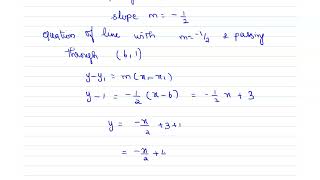 slope m = -1/2
equation of line with m = -1/2 & passing
through (6,1)
y-y₁ = m(x-x₁)
y-1 = -1/2 (x-6) = -1/2 x + 3
y = -x/2 + 3+1
= -x/2 + 4